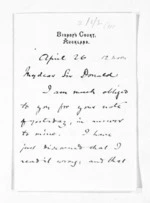 BISHOP'S COURT,
AUCKLAND.
April 26
My dear Sir Donald
I am much obliged
to you for your note
of yesterday, in answer
to mine. I have
just discovered that I
read it wrong, and that